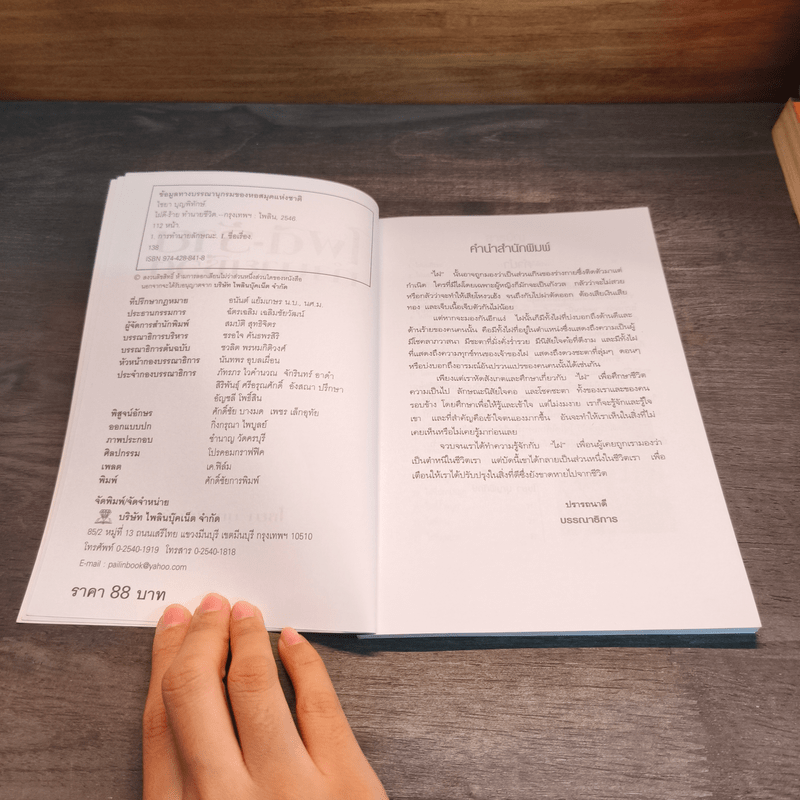 ข้อมูลทางบรรณานุกรมของหอสมุดแห่งชาติ
ไชยา บุญพิทักษ์
ไฝดี-ร้าย ทำนายชีวิต.--กรุงเทพฯ : ไพลิน, 2546
112 หน้า
1. การทำนายลักษณะ. I. ชื่อเรื่อง.
138
ISBN 974-428-941-8
© สงวนลิขสิทธิ์ ห้ามการลอกเลียนไม่ว่าส่วนหนึ่งส่วนใดของหนังสือ
นอกจากจะได้รับอนุญาตจาก บริษัท ไพลินบุ๊คเน็ต จำกัด
ที่ปรึกษากฎหมาย อนันต์ แย้มเกษร น.บ., นศ.ม.
ประธานกรรมการ ฉัตรเฉลิม เฉลิมชัยวัฒน์
ผู้จัดการสำนักพิมพ์ สมบัติ สุทธิจิตร
บรรณาธิการบริหาร ขรอใจ คันธพรสิริ
บรรณาธิการต้นฉบับ ชวลิต พรหมกิติวงศ์
หัวหน้ากองบรรณาธิการ นันทพร อุบลเผื่อน
ประจำกองบรรณาธิการ ภัทรภร ไวคำนวณ จักรินทร์ อาดำ
สิริพันธุ์ ศรีอรุณศักดิ์ อังสณา ปรึกษา
อัญชลี โพธิ์สิน
พิสูจน์อักษร ศักดิ์ชัย บางมด เพชร เล้กอุทัย
ออกแบบปก กิ่งกรุณา ไพบูลย์
ภาพประกอบ ชำนาญ วัตครบุรี
ศิลปกรรม โปรคอมกราฟฟิค
เพลต เค.ฟิล์ม
พิมพ์ ศักดิ์ชัยการพิมพ์
จัดพิมพ์/จัดจำหน่าย
บริษัท ไพลินบุ๊คเน็ต จำกัด
85/2 หมู่ที่ 13 ถนนเสรีไทย แขวงมีนบุรี เขตมีนบุรี กรุงเทพฯ 10510
โทรศัพท์ 0-2540-1919 โทรสาร 0-2540-1818
E-mail : pailinbook@yahoo.com
ราคา 88 บาท
คำนำสำนักพิมพ์
"ไฝ" นั้นอาจถูกมองว่าเป็นส่วนเกินของร่างกายซึ่งติดตัวมาแต่
กำเนิด ใครที่มีไฝโดยเฉพาะผู้หญิงก็มักจะเป็นกังวล กลัวว่าจะไม่สวย
หรือกลัวว่าจะทำให้เสียโหงวเฮ้ง จนถึงกับไปผ่าตัดออก ต้องเสียเงินเสีย
ทอง และเจ็บเนื้อเจ็บตัวกันไม่น้อย
แต่หากจะมองกันอีกแง่ ไฝนั้นก็มีทั้งไฝที่บ่งบอกถึงด้านดีและ
ด้านร้ายของคนคนนั้น คือมีทั้งไฝที่อยู่ในตำแหน่งซึ่งแสดงถึงความเป็นผู้
มีโชคลาภวาสนา มีชะตาที่มั่งคั่งร่ำรวย มีนิสัยใจคอที่ดีงาม และมีทั้งไฝ
ที่แสดงถึงความทุกข์ทนของเจ้าของไฝ แสดงถึงดวงชะตาที่ลุ่มๆ ดอนๆ
หรือบ่งบอกถึงอารมณ์อันปรวนแปรของคนคนนั้นได้เช่นกัน
เพียงแต่เราหัดสังเกตและศึกษาเกี่ยวกับ "ไฝ" เพื่อศึกษาชีวิต
ความเป็นไป ลักษณะนิสัยใจคอ และโชคชะตา ทั้งของเราและของคน
รอบข้าง โดยศึกษาเพื่อให้รู้และเข้าใจ แต่ไม่งมงาย เราก็จะรู้จักและรู้ใจ
เขา และที่สำคัญคือเข้าใจตนเองมากขึ้น อันจะทำให้เราเห็นในสิ่งที่ไม่
เคยเห็นหรือไม่เคยรู้มาก่อนเลย
จวบจนเราได้ทำความรู้จักกับ "ไฝ" เพื่อนผู้เคยถูกเรามองว่า
เป็นตำหนิในชีวิตเรา แต่บัดนี้เราได้กลายเป็นส่วนหนึ่งในชีวิตเรา เพื่อ
เตือนให้เราได้ปรับปรุงในสิ่งที่ดีซึ่งยังขาดหายไปจากชีวิต
ปรารถนาดี
บรรณาธิการ